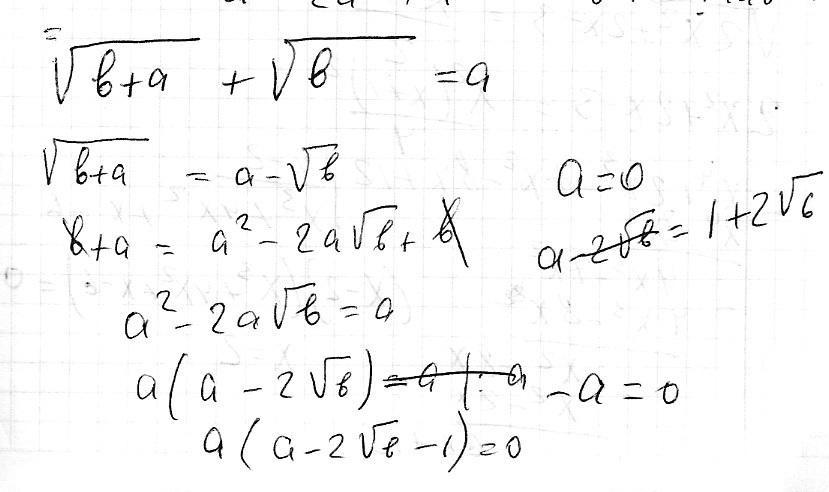 √(b+a) + √b = a
√(b+a) = a - √b
b+a = a² - 2a√b + b
a² - 2a√b = a
a(a - 2√b) = a | : a - a = 0
a(a - 2√b - 1) = 0
a = 0
a - 2√b = 1 + 2√b